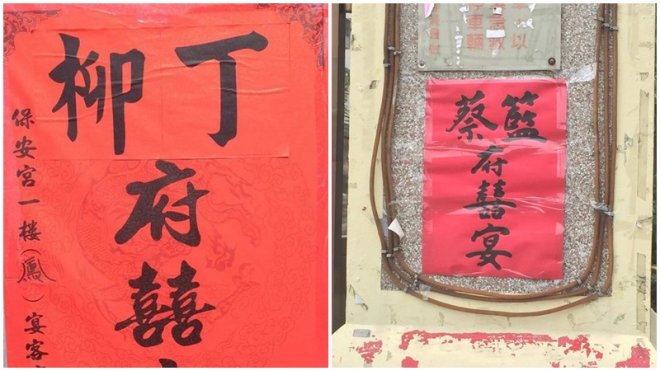 丁柳
府囍
保安宮一樓(鳳)宴客
籃蔡
府囍宴